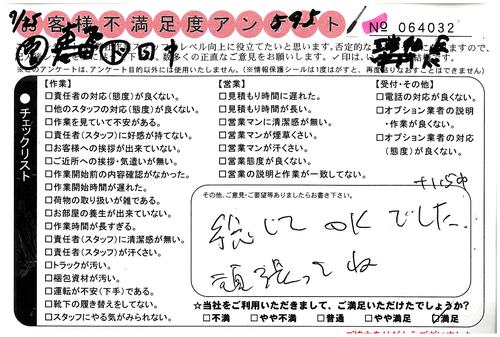 7/25
お客様不満足度アンケート
595
No 064032
レベル向上に役立てたいと思います。否定的な
数多くの正直なご意見をお願いします。✓印は、
※このアンケートは、アンケート目的以外には使用いたしません。(※情報保護シールは1度はがすと、再度貼りなおすことはできません)
チェックリスト
【作業】
□責任者の対応(態度)が良くない。
□他のスタッフの対応(態度)が良くない。
□作業を見ていて不安がある。
□責任者(スタッフ)に好感が持てない。
□お客様への挨拶が出来ていない。
□ご近所への挨拶・気遣いが無い。
□作業開始前の内容確認がなかった。
□作業開始時間が遅れた。
□荷物の取り扱いが雑である。
□お部屋の養生が出来ていない。
□作業時間が長すぎる。
□責任者(スタッフ)に清潔感が無い。
□責任者(スタッフ)が汗くさい。
□トラックが汚い。
□梱包資材が汚い。
□運転が不安(下手)である。
□靴下の履き替えをしてない。
□スタッフにやる気がみられない。
【営業】
□見積もり時間に遅れた。
□見積もり時間が長い。
□営業マンに清潔感が無い。
□営業マンが煙草くさい。
□営業マンが汗くさい。
□営業態度が良くない。
□営業の説明と作業が一致してない。
【受付・その他】
□電話の対応が良くない。
□オプション業者の説明
・作業が良くない。
□オプション業者の対応
(態度)が良くない。
その他、ご意見・ご要望等ありましたらお書き下さい。
総じてOKでした。
頑張ってね
☆当社をご利用いただきまして、ご満足いただけたでしょうか?
□不満 □やや不満 □普通 □やや満足 ☑満足